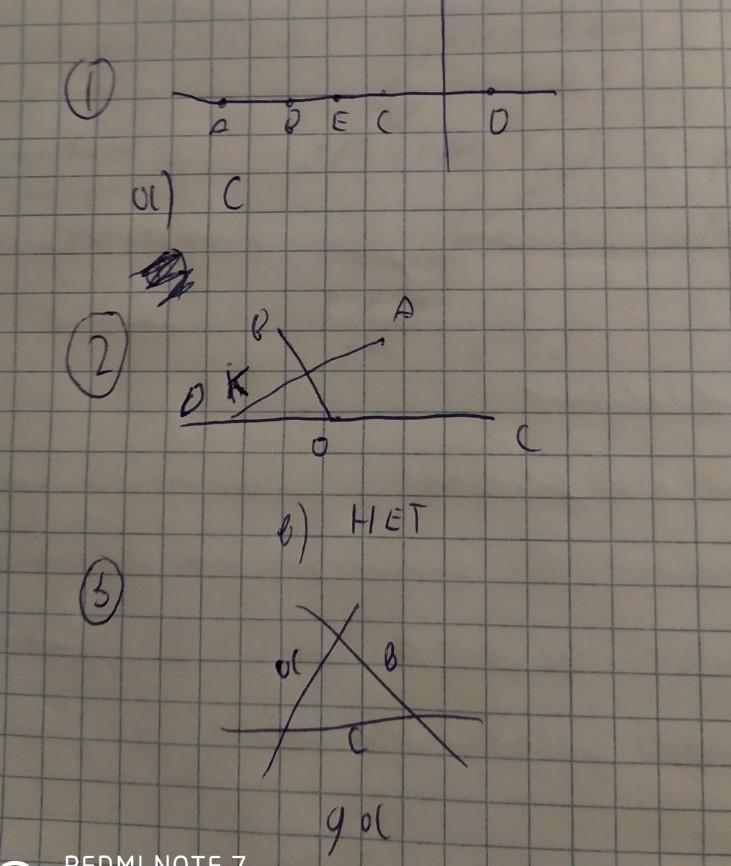 1
A B E C D
а) C
2
B A
D K
O C
в) НЕТ
3
а B
C
да
REDMI NOTE 7